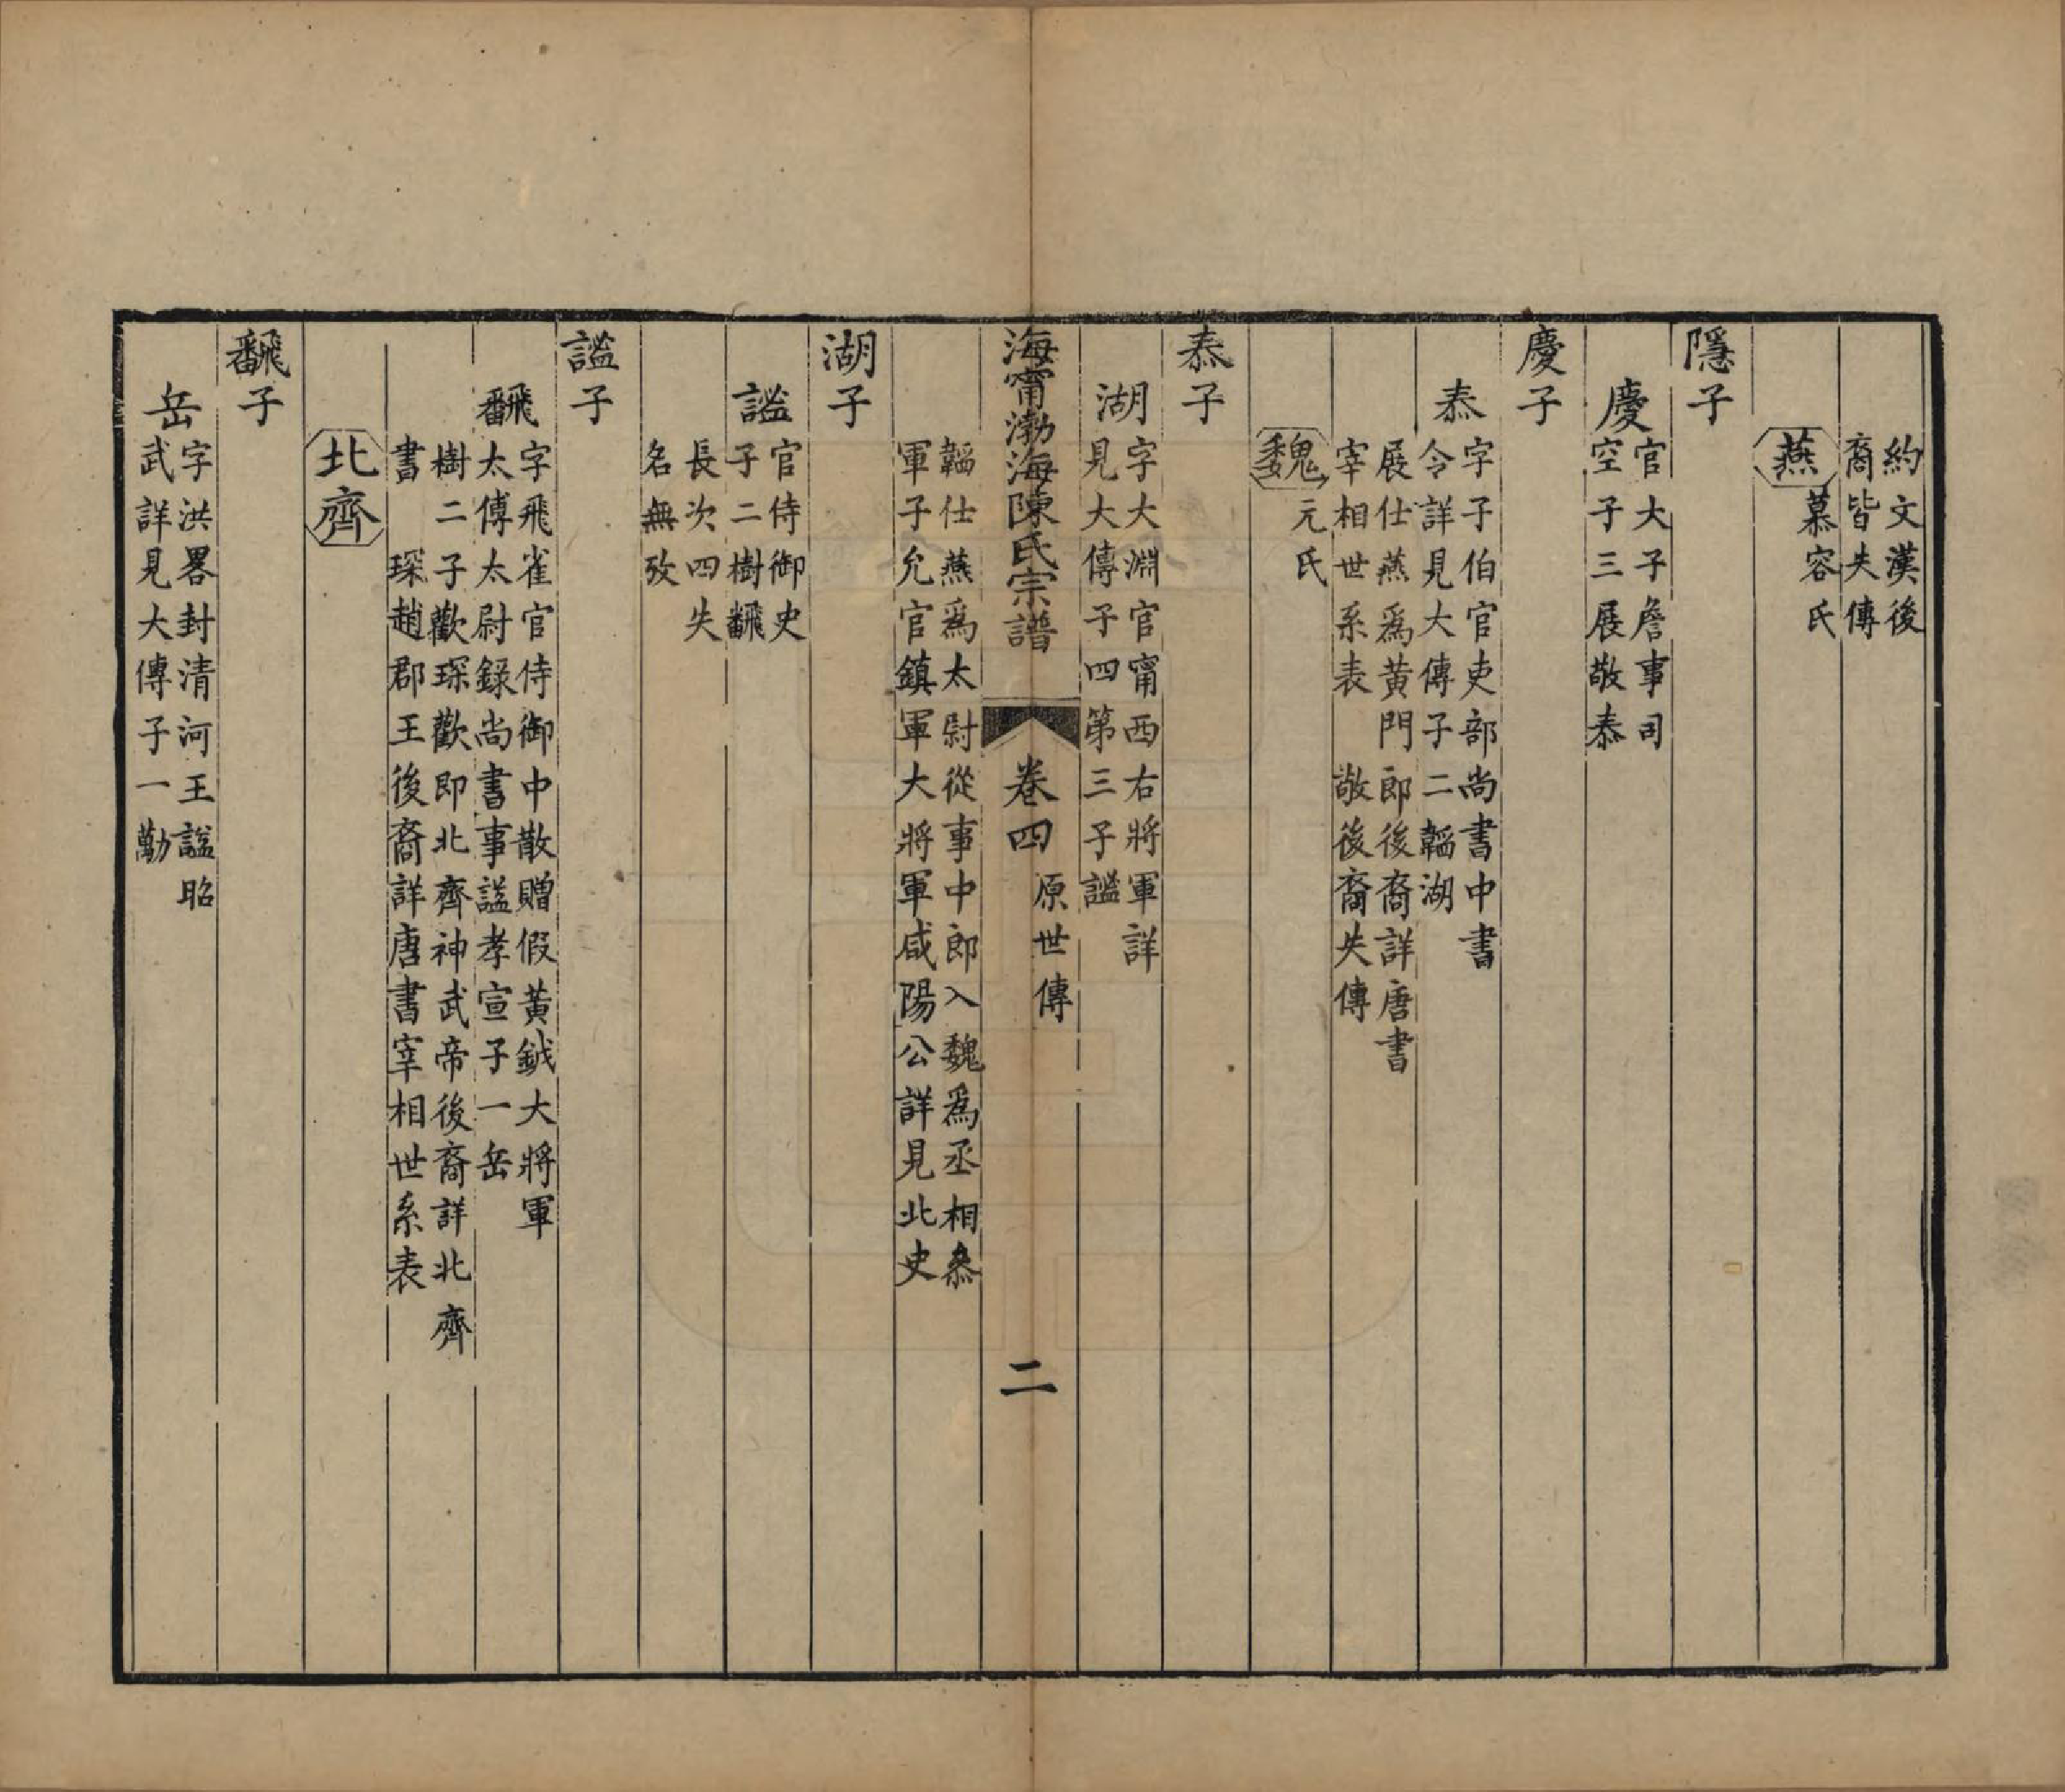 約文漢後
裔皆失傳
燕慕容氏
隱子
慶官大子詹事司
空子三展敬泰
慶子
泰字子伯官吏部尚書中書
令詳見大傳子二韜湖
展仕燕爲黄門郎後裔詳唐書
宰相世系表　敬後裔失傳
魏元氏
泰子
湖字大淵官甯西右將軍詳
見大傳子四第三子謐
海甯渤海陳氏宗譜　卷四　原世傳　二
韜仕燕爲太尉從事中郎入魏爲丞相叅
軍子允官鎮軍大將軍咸陽公詳見北史
湖子
謐官侍御史
子二樹飜
長次四失
名無攷
謐子
飜字飛雀官侍御中散贈假黄鉞大將軍
太傅太尉録尚書事謚孝宣子一岳
樹二子歡琛歡即北齊神武帝後裔詳北齊
書　琛趙郡王後裔詳唐書宰相世系表
北齊
飜子
岳字洪畧封清河王謚昭
武詳見大傳子一勱